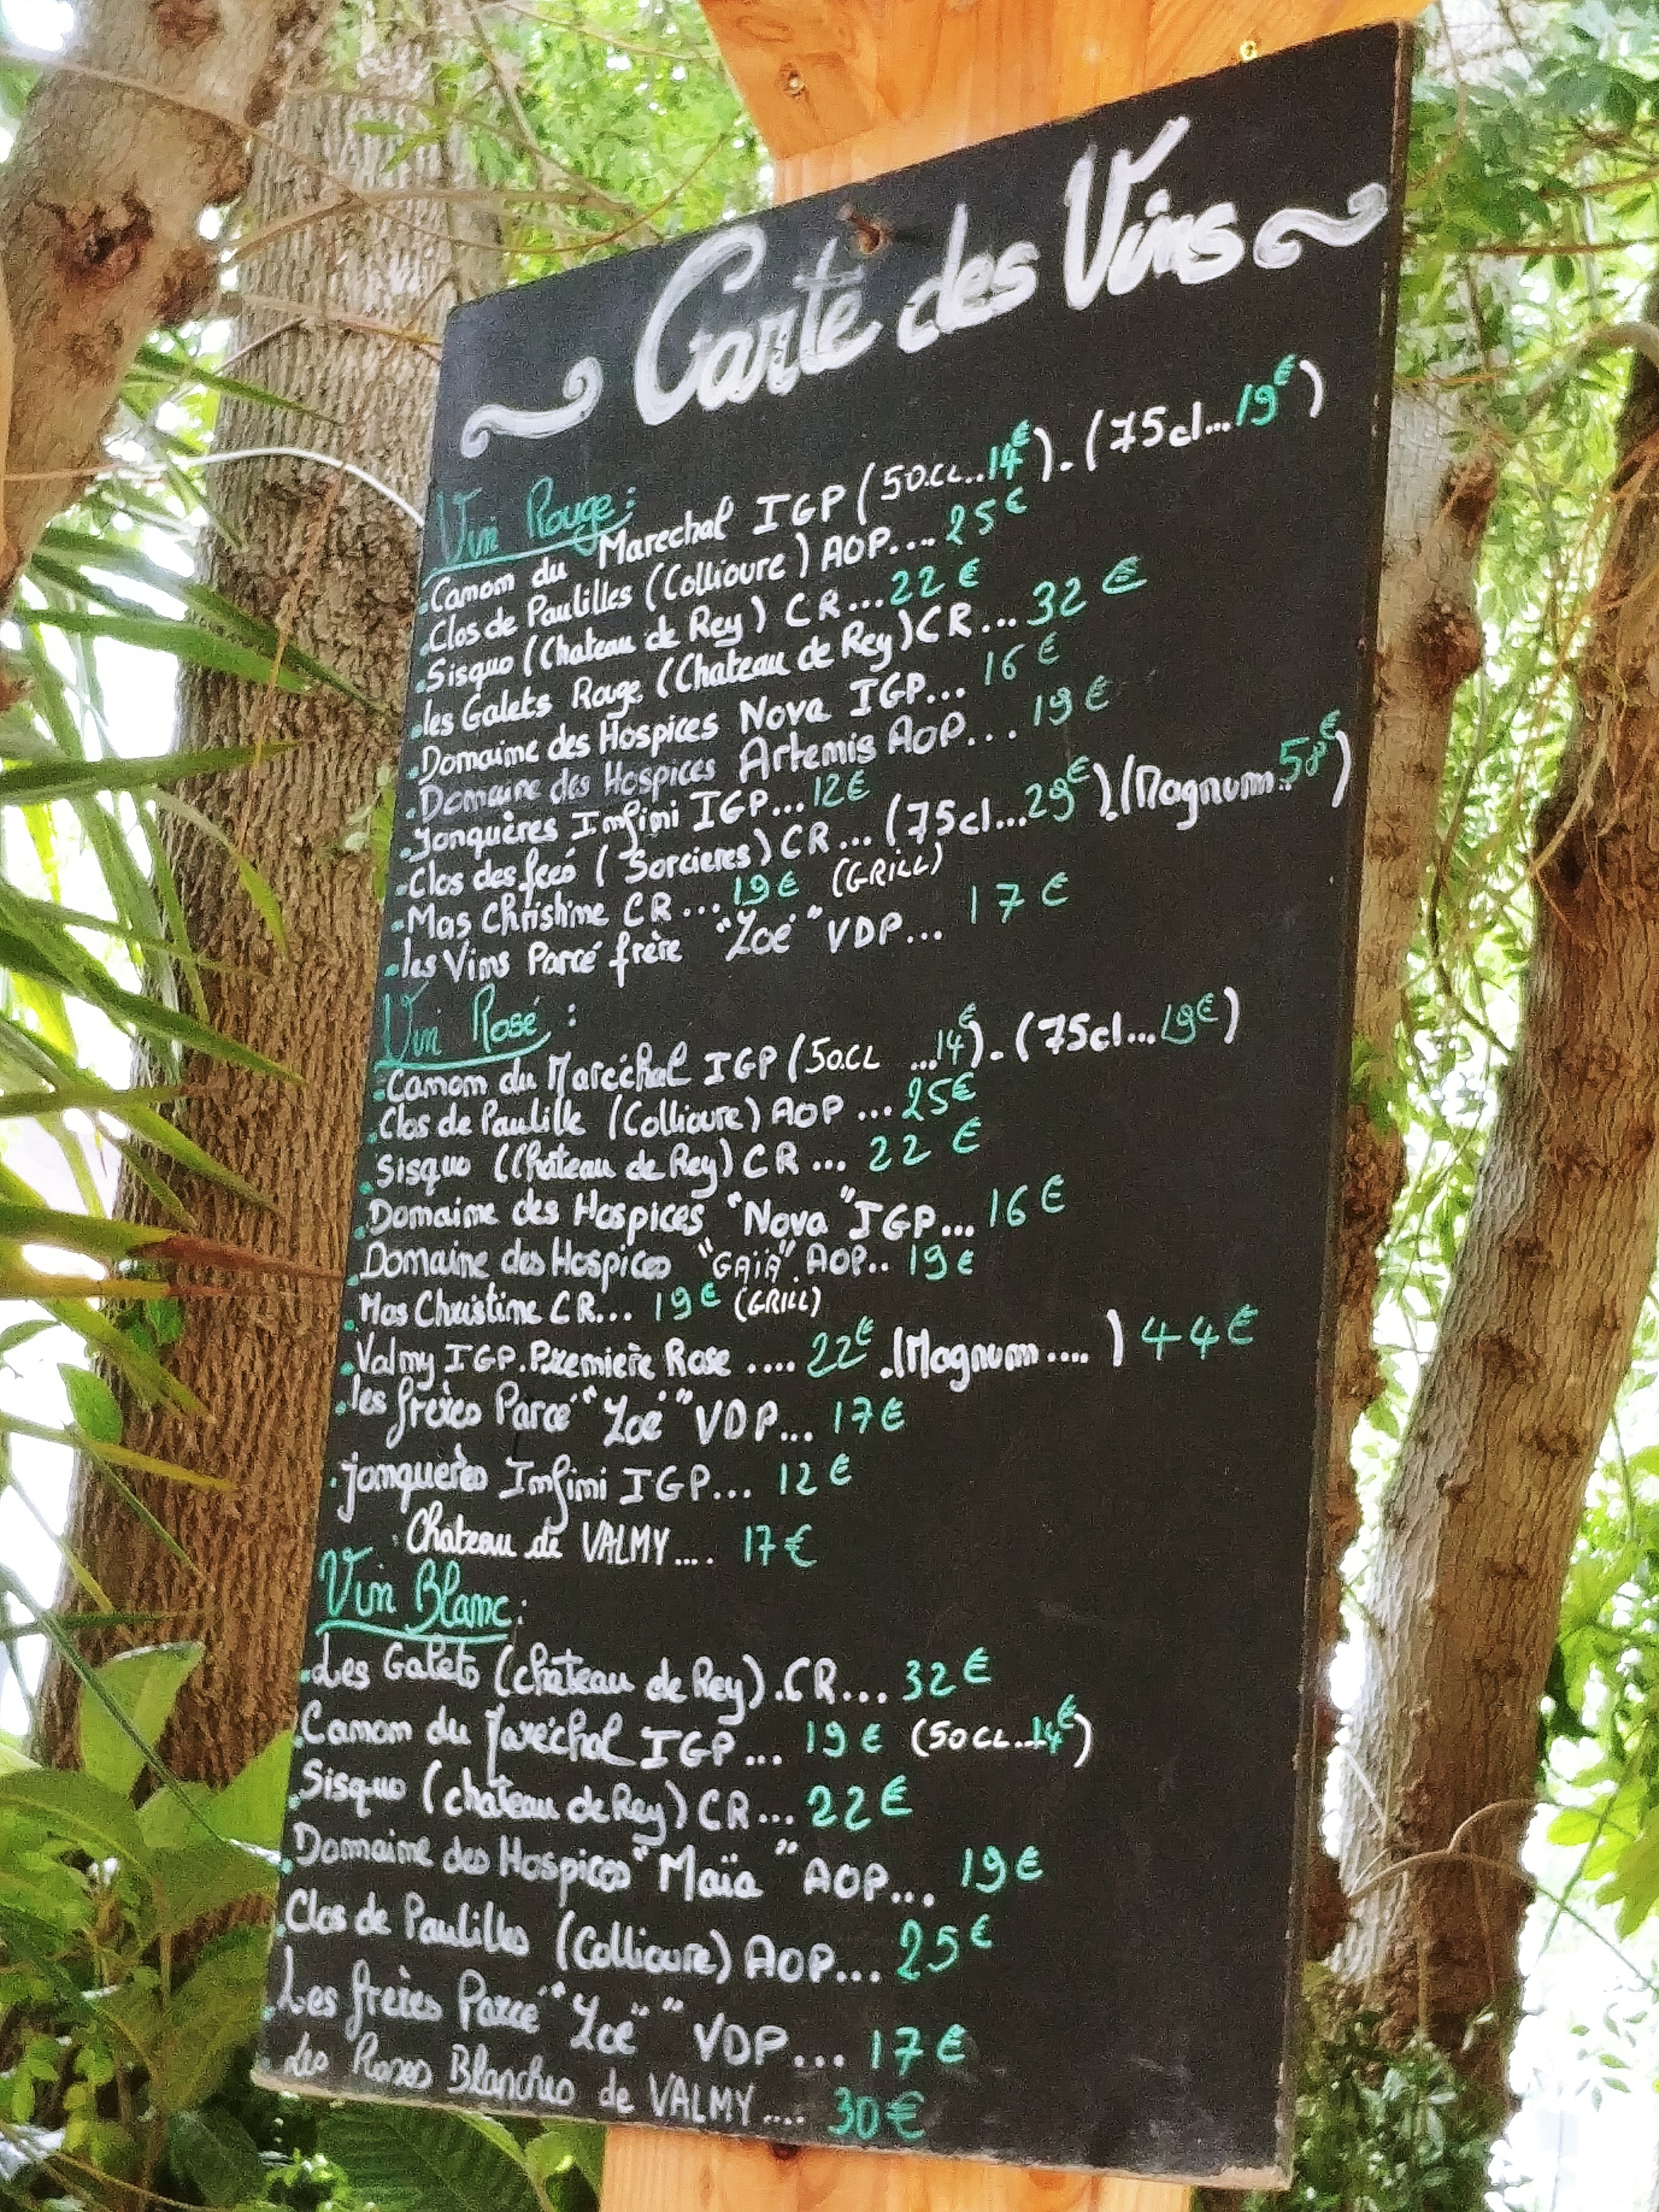 Carte des Vins
Vin Rouge:
.Canon du Marechal IGP (50.CL..14€).(75cl...19€)
.Clos de Paulilles (Collioure) AOP.... 25€
.Sisquo (Chateau de Rey) CR...22€
.les Galets Rouge (Chateau de Rey) CR... 32€
.Domaine des Hospices Nova IGP... 16€
.Domaine des Hospices Artemis AOP... 19€
.Jonquères Infini IGP...12€
.Clos des feés (Sorcieres) CR... (75cl...29€).(Magnum..58€)
.Mas Christine CR...19€ (GRILL)
.les Vins Parcé frère "Zoé" VDP... 17€
Vin Rosé:
.Canon du Maréchal IGP (50.CL ...14€).(75cl...19€)
.Clos de Paulille (Collioure) AOP ... 25€
.Sisquo (Château de Rey) CR ... 22€
.Domaine des Hospices "Nova" IGP... 16€
.Domaine des Hospices "GAïA". AOP.. 19€
.Mas Christine CR... 19€ (GRILL)
.Valmy IGP.Premierè Rose .... 22€ .(Magnum ....) 44€
.les frères Parcé "Zoé" VDP... 17€
.jonquerès Infini IGP... 12€
.Chateau de VALMY.... 17€
Vin Blanc:
.Les Galets (château de Rey).CR... 32€
.Canon du Maréchal IGP... 19€ (50CL..14€)
.Sisquo (château de Rey) CR... 22€
.Domaine des Hospices "Maïa" AOP... 19€
.Clos de Paulilles (Collioure) AOP... 25€
.Les frères Parcé "Zoë" VDP... 17€
.Les Roses Blanches de VALMY.... 30€